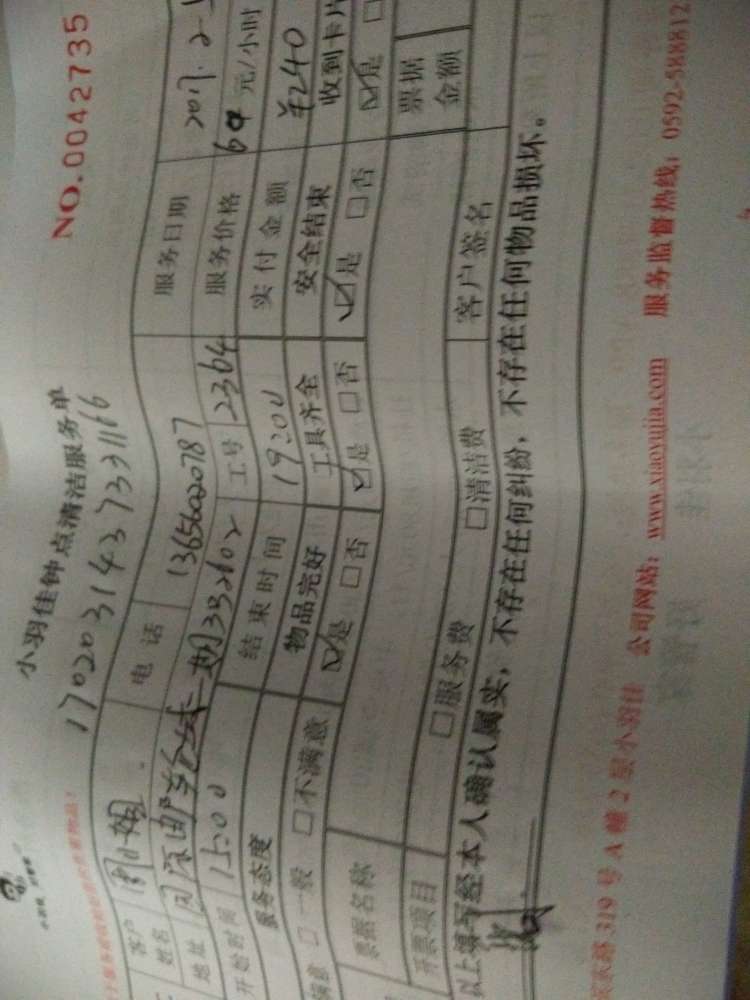 NO.0042735
小羽佳钟点清洁服务单
17020314373331166
客户姓名 电话 13656020787 服务日期 2017.2.
地址 二期 2602 工号 2364 服务价格 60 元/小时
开始时间 15:00 结束时间 19:00 实付金额 ¥240
服务态度 物品完好 工具齐全 安全结束 收到卡片
满意 □一般 □不满意 ☑是 □否 ☑是 □否 ☑是 □否 ☑是 □
票据名称 票据金额
开票项目 □服务费 □清洁费 客户签名
以上填写经本人确认属实，不存在任何纠纷，不存在任何物品损坏。
路319号A幢2层小羽佳 公司网站：www.xiaoyujia.com 服务监督热线：0592-588812